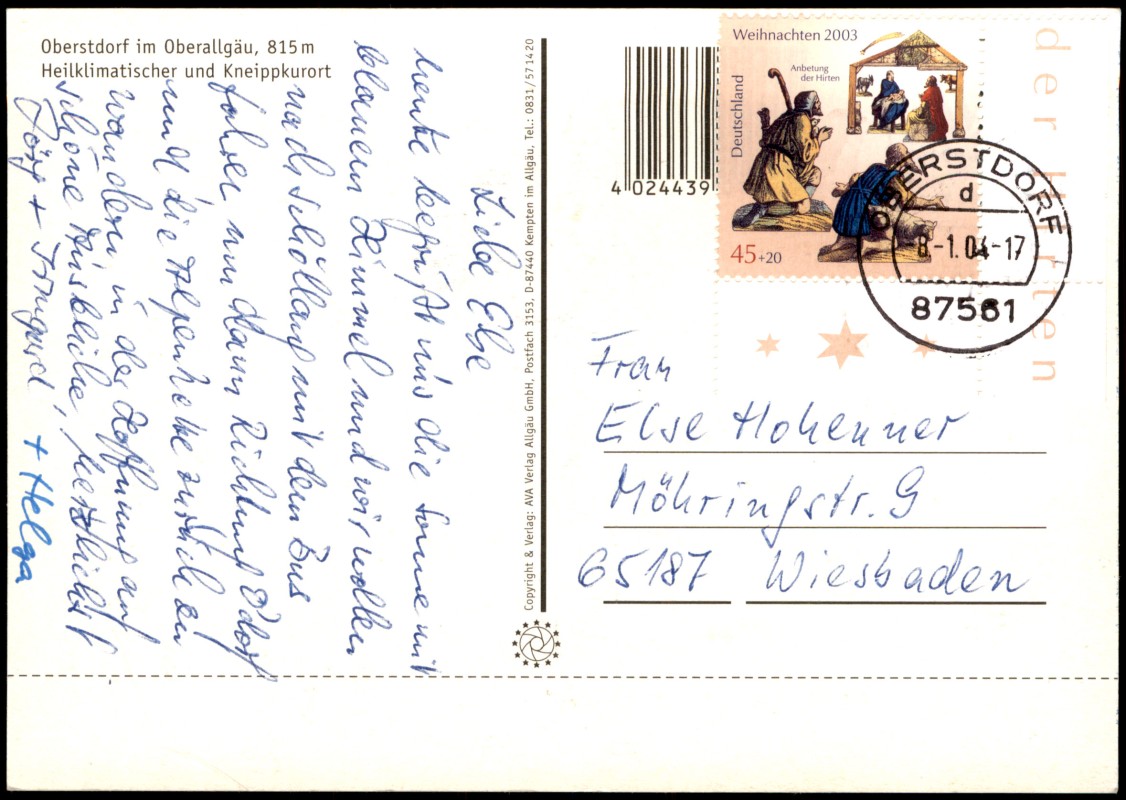 Oberstdorf im Oberallgäu, 815 m
Heilklimatischer und Kneippkurort
Liebe Else
heute begrüßt uns die Sonne mit
blauem Himmel und wir wollen
nach Schöllang mit dem Bus
fahren, um dann Richtung O'dorf
und die Alpen zurück zu
wandern in der Hoffnung auf
schöne Ausblicke, herzlichst
Jörg + Irmgard
+ Helga
Copyright & Verlag: AVA Verlag Allgäu GmbH, Postfach 3153, D-87440 Kempten im Allgäu, Tel.: 0831/571420
4 024439
Weihnachten 2003
Anbetung
der Hirten
Deutschland
45+20
der Hirten
OBERSTDORF
d
8-1.04-17
87561
Frau
Else Hohenner
Möhringstr. 9
65187 Wiesbaden